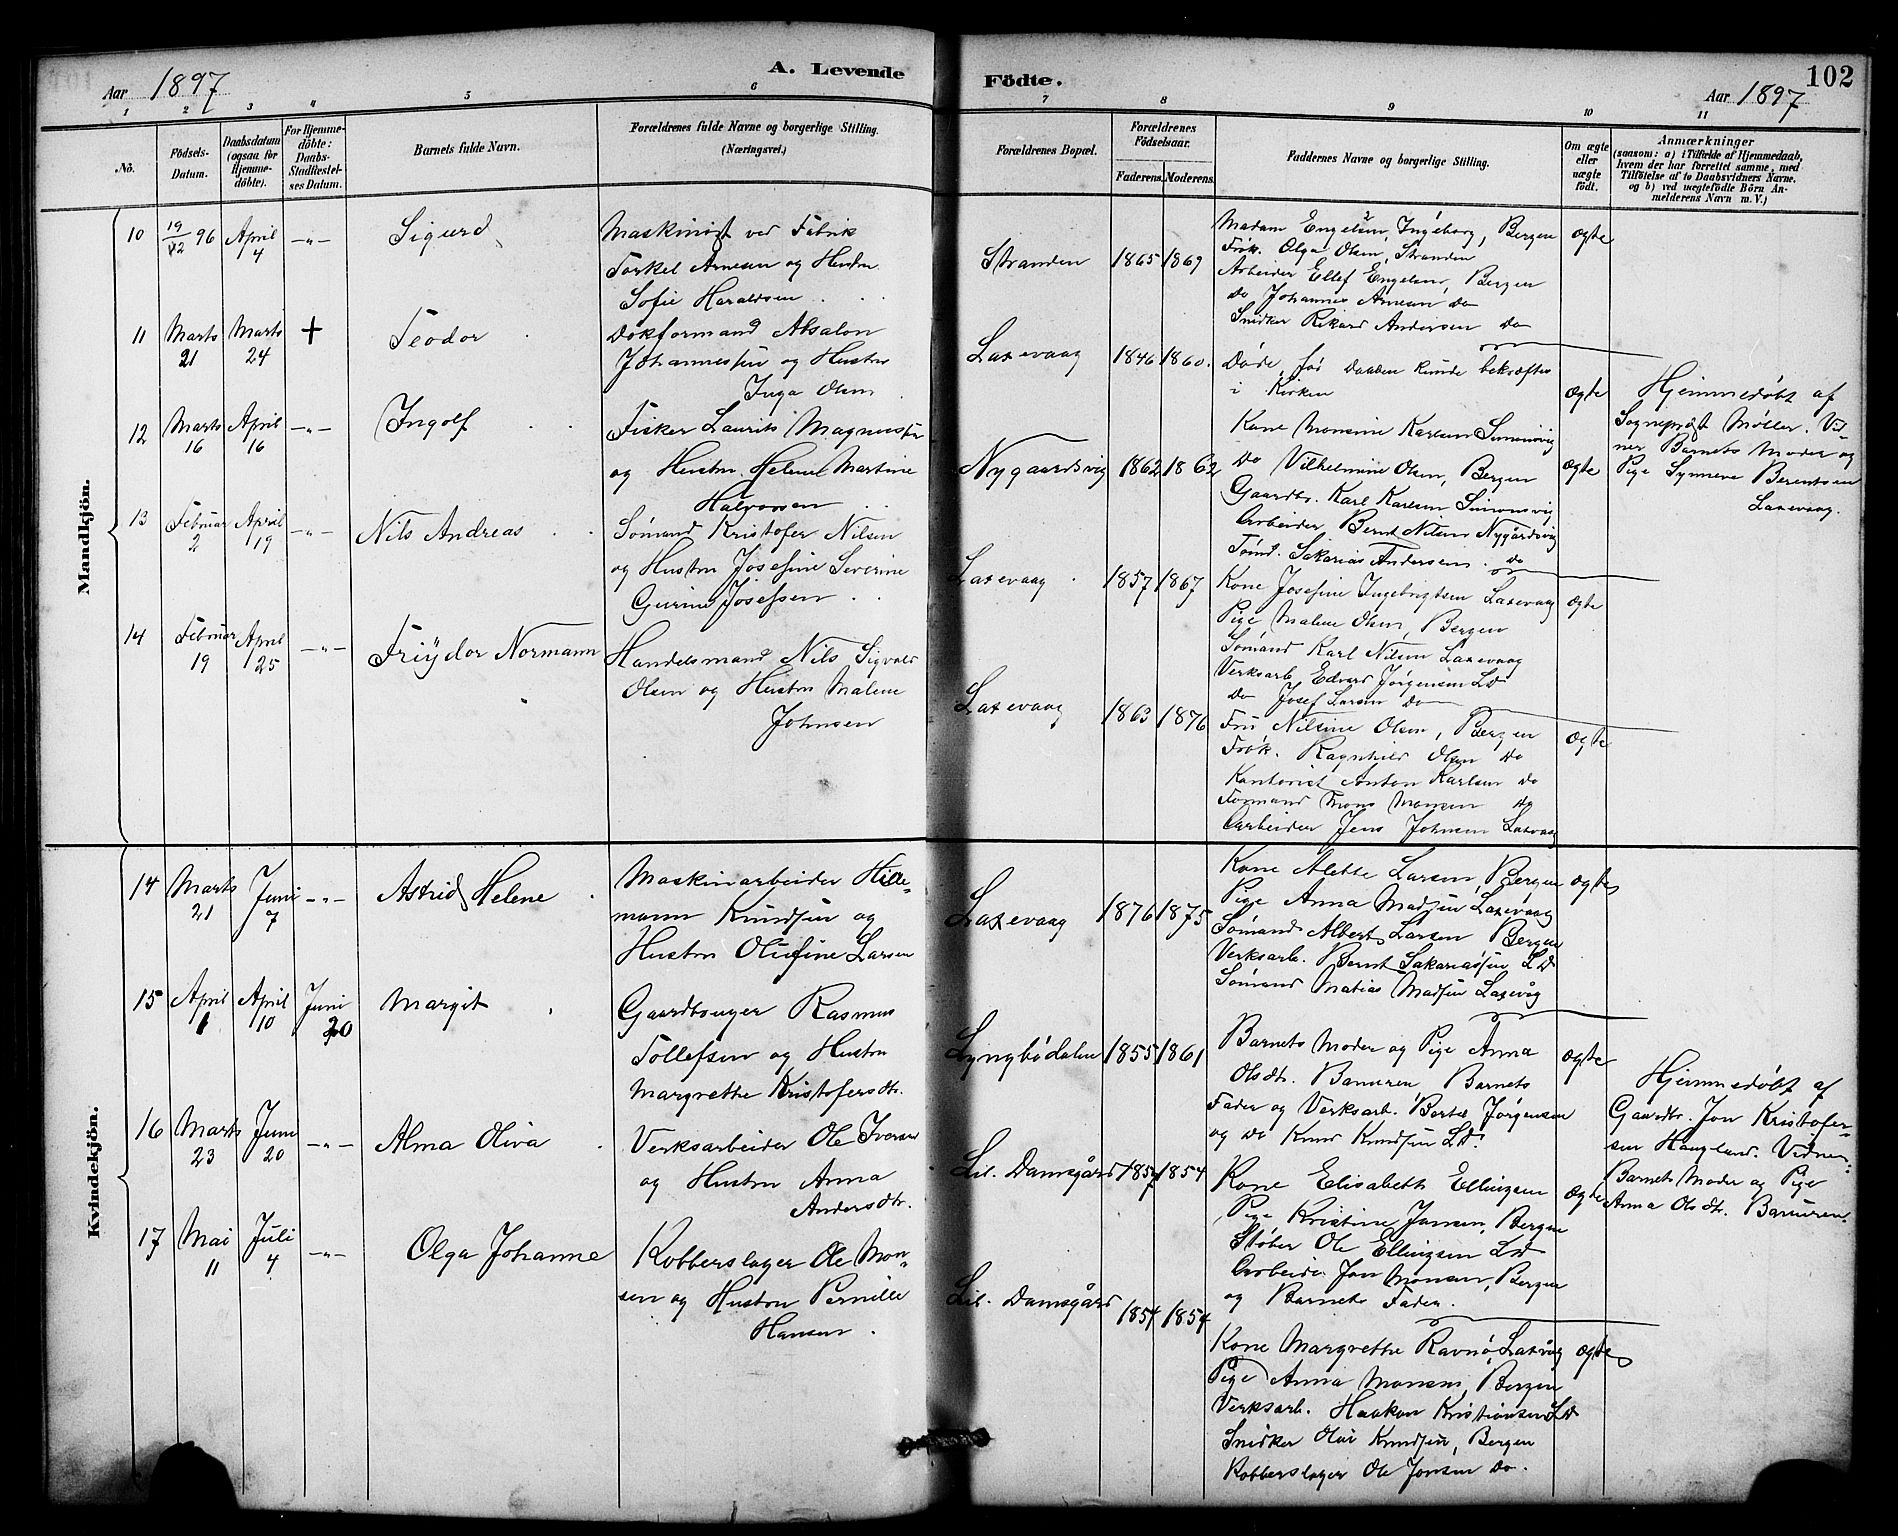 102
A. Levende Födte.
Aar 1897
Aar 1897
1 2 3 4 5 6 7 8 9 10 11
No.
Födsels-Datum.
Daabsdatum (ogsaa for Hjemmedøbte).
For Hjemmedøbte: Daabs-Stadfestelses Datum.
Barnets fulde Navn.
Forældrenes fulde Navne og borgerlige Stilling.
(Næringsvei.)
Forældrenes Bopæl.
Forældrenes Födselsaar.
Faderens. Moderens.
Faddernes Navne og borgerlige Stilling.
Om ægte eller uægte født.
Anmærkninger
(saasom: a) i Tilfælde af Hjemmedaab, hvem der har forrettet samme, med Tilføielse af to Daabsvidners Navne. og b) ved uegtefödte Börn Anmelderens Navn m. V.)
Mandkjön.
10 19/12 96 April 4 -"- Sigurd
Maskinist ved Fabrik
Torkel Arnesen og Hustru
Sofie Haraldsen
Stranden 1865 1869
Madam Engelsen, Ingeborg, Bergen
Frøk. Olga Olsen, Stranden
Arbeider Ellef Engelsen, Bergen
Do Johannes Arnesen Do
Snidker Rikard Andersen Do
ægte
11 Marts 21 Marts 24 + Teodor
Dokformand Absalon
Johannessen og Hustru
Inga Olsen
Laxevaag 1846 1860.
Døde før Daaben kunde bekræftes
i Kirken
ægte
Hjemmedøbt af
Sogneprest Møller. Vid-
ner Barnets Moder og
Pige Synneva Berentsen
Laxevaag.
12 Marts 16 April 16 -"- Ingolf
Fisker Laurits Magnussen
og Hustru Helene Martine
Halvorsen
Nygaardsvig 1862 1862
Kone Monsine Karlsen Simonsvig
Do Vilhelmine Olsen, Bergen
Gaardbr. Karl Karlsen Simonsvig
Arbeider Bernt Nilsen Nygårdsvig
Tømd. Sakarias Andersen Do
ægte
13 Februar 2 April 19 -"- Nils Andreas
Sømand Kristofer Nilsen
og Hustru Josefine Severine
Gurine Josefsen
Laxevaag 1857 1867
Kone Josefine Ingebrigtsen Laxevaag
Pige Malene Olsen, Bergen
Sømand Karl Nilsen Laxevaag
Verksarb. Edvard Jørgensen L.D
Do Josef Larsen Do
ægte
14 Februar 19 April 25 -"- Friydor Normann
Handelsmand Nils Sigvald
Olsen og Hustru Malene
Johnsen
Laxevaag 1863 1876
Fru Nilsine Olsen, Bergen
Frøk. Ragnhild Olsen Do
Kontorist Anton Karlsen Do
Formand Mons Monsen Do
Arbeider Jens Johnsen Laxevaag
ægte
Kvindekjön.
14 Marts 21 Juni 7 -"- Astrid Helene
Maskinarbeider Hille-
mann Knudsen og
Hustru Olufine Larsen
Laxevaag 1876 1875
Kone Alette Larsen, Bergen
Pige Anna Madsen Laxevaag
Sømand Albert Larsen Bergen
Verksarb. Bernt Sakariassen L.D
Sømand Matias Madsen Laxevåg
ægte
15 April 1 April 10 Juni 20 Margit
Gaardbruger Rasmus
Tollefsen og Hustru
Margrethe Kristofersdtr.
Lyngbödalen 1855 1861
Barnets Moder og Pige Anna
Olsdtr. Banuren, Barnets
Fader og Verksarb. Bertel Jørgensen
og Do Knud Knudsen L.D.
ægte
Hjemmedøbt af
Gaardbr. Jon Kristofer-
sen Haugland. Vidner:
Barnets Moder og Pige
Anna Olsdtr. Banuren.
16 Marts 23 Juni 20 -"- Alma Oliva
Verksarbeider Ole Iversen
og Hustru Anna
Andersdtr.
Lil. Damsgård 1857 1854
Kone Elisabeth Ellingsen
Pige Kristine Jansen, Bergen
Støber Ole Ellingsen L.D
Arbeider Jon Monsen, Bergen
og Barnets Fader.
ægte
17 Mai 11 Juli 4 -"- Olga Johanne
Kobberslager Ole Mon-
sen og Hustru Pernille
Hansen.
Lil. Damsgård 1854 1854
Kone Margrethe Ravnø, Laxevåg
Pige Anna Monsen, Bergen
Verksarb. Haakon Kristiansen L.D
Snidker Olai Knudsen, Bergen
Kobberslager Ole Jonsen Do.
ægte